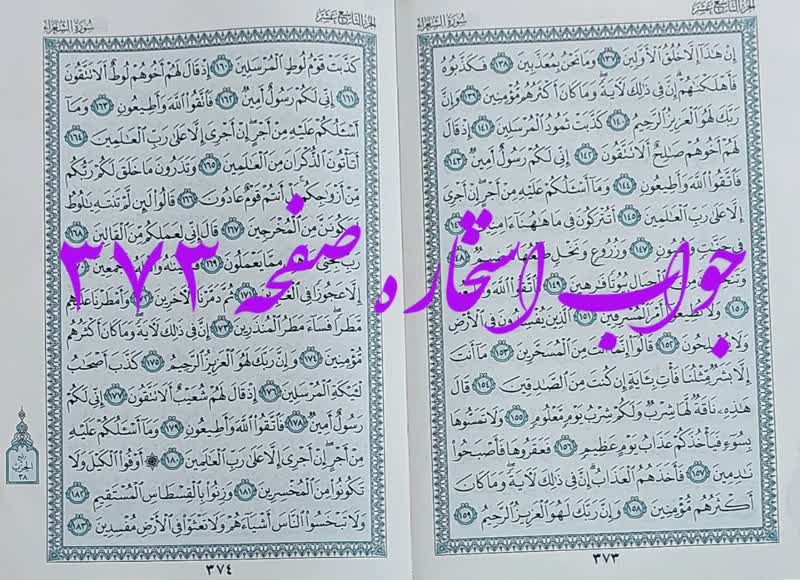 الجزء التاسع عشر
سورة الشعراء
إِنْ هَٰذَا إِلَّا خُلُقُ الْأَوَّلِينَ ١٣٧ وَمَا نَحْنُ بِمُعَذَّبِينَ ١٣٨ فَكَذَّبُوهُ
فَأَهْلَكْنَاهُمْ إِنَّ فِي ذَٰلِكَ لَآيَةً وَمَا كَانَ أَكْثَرُهُم مُّؤْمِنِينَ ١٣٩ وَإِنَّ
رَبَّكَ لَهُوَ الْعَزِيزُ الرَّحِيمُ ١٤٠ كَذَّبَتْ ثَمُودُ الْمُرْسَلِينَ ١٤١ إِذْ قَالَ
لَهُمْ أَخُوهُمْ صَالِحٌ أَلَا تَتَّقُونَ ١٤٢ إِنِّي لَكُمْ رَسُولٌ أَمِينٌ ١٤٣
فَاتَّقُوا اللَّهَ وَأَطِيعُونِ ١٤٤ وَمَا أَسْأَلُكُمْ عَلَيْهِ مِنْ أَجْرٍ إِنْ أَجْرِيَ
إِلَّا عَلَىٰ رَبِّ الْعَالَمِينَ ١٤٥ أَتُتْرَكُونَ فِي مَا هَاهُنَا آمِنِينَ ١٤٦
فِي جَنَّاتٍ وَعُيُونٍ ١٤٧ وَزُرُوعٍ وَنَخْلٍ طَلْعُهَا هَضِيمٌ ١٤٨
وَتَنْحِتُونَ مِنَ الْجِبَالِ بُيُوتًا فَارِهِينَ ١٤٩ فَاتَّقُوا اللَّهَ وَأَطِيعُونِ
١٥٠ وَلَا تُطِيعُوا أَمْرَ الْمُسْرِفِينَ ١٥١ الَّذِينَ يُفْسِدُونَ فِي الْأَرْضِ
وَلَا يُصْلِحُونَ ١٥٢ قَالُوا إِنَّمَا أَنتَ مِنَ الْمُسَحَّرِينَ ١٥٣ مَا أَنتَ
إِلَّا بَشَرٌ مِّثْلُنَا فَأْتِ بِآيَةٍ إِن كُنتَ مِنَ الصَّادِقِينَ ١٥٤ قَالَ
هَٰذِهِ نَاقَةٌ لَّهَا شِرْبٌ وَلَكُمْ شِرْبُ يَوْمٍ مَّعْلُومٍ ١٥٥ وَلَا تَمَسُّوهَا
بِسُوءٍ فَيَأْخُذَكُمْ عَذَابُ يَوْمٍ عَظِيمٍ ١٥٦ فَعَقَرُوهَا فَأَصْبَحُوا
نَادِمِينَ ١٥٧ فَأَخَذَهُمُ الْعَذَابُ إِنَّ فِي ذَٰلِكَ لَآيَةً وَمَا كَانَ
أَكْثَرُهُم مُّؤْمِنِينَ ١٥٨ وَإِنَّ رَبَّكَ لَهُوَ الْعَزِيزُ الرَّحِيمُ ١٥٩
٣٧٣
الجزء التاسع عشر
سورة الشعراء
كَذَّبَتْ قَوْمُ لُوطٍ الْمُرْسَلِينَ ١٦٠ إِذْ قَالَ لَهُمْ أَخُوهُمْ لُوطٌ أَلَا تَتَّقُونَ
١٦١ إِنِّي لَكُمْ رَسُولٌ أَمِينٌ ١٦٢ فَاتَّقُوا اللَّهَ وَأَطِيعُونِ ١٦٣ وَمَا
أَسْأَلُكُمْ عَلَيْهِ مِنْ أَجْرٍ إِنْ أَجْرِيَ إِلَّا عَلَىٰ رَبِّ الْعَالَمِينَ ١٦٤
أَتَأْتُونَ الذُّكْرَانَ مِنَ الْعَالَمِينَ ١٦٥ وَتَذَرُونَ مَا خَلَقَ لَكُمْ رَبُّكُم
مِّنْ أَزْوَاجِكُم بَلْ أَنتُمْ قَوْمٌ عَادُونَ ١٦٦ قَالُوا لَئِن لَّمْ تَنتَهِ يَا لُوطُ
لَتَكُونَنَّ مِنَ الْمُخْرَجِينَ ١٦٧ قَالَ إِنِّي لِعَمَلِكُم مِّنَ الْقَالِينَ ١٦٨
رَبِّ نَجِّنِي وَأَهْلِي مِمَّا يَعْمَلُونَ ١٦٩ فَنَجَّيْنَاهُ وَأَهْلَهُ أَجْمَعِينَ ١٧٠
إِلَّا عَجُوزًا فِي الْغَابِرِينَ ١٧١ ثُمَّ دَمَّرْنَا الْآخَرِينَ ١٧٢ وَأَمْطَرْنَا عَلَيْهِم
مَّطَرًا فَسَاءَ مَطَرُ الْمُنذَرِينَ ١٧٣ إِنَّ فِي ذَٰلِكَ لَآيَةً وَمَا كَانَ أَكْثَرُهُم
مُّؤْمِنِينَ ١٧٤ وَإِنَّ رَبَّكَ لَهُوَ الْعَزِيزُ الرَّحِيمُ ١٧٥ كَذَّبَ أَصْحَابُ
لْئَيْكَةِ الْمُرْسَلِينَ ١٧٦ إِذْ قَالَ لَهُمْ شُعَيْبٌ أَلَا تَتَّقُونَ ١٧٧ إِنِّي لَكُمْ
رَسُولٌ أَمِينٌ ١٧٨ فَاتَّقُوا اللَّهَ وَأَطِيعُونِ ١٧٩ وَمَا أَسْأَلُكُمْ عَلَيْهِ
مِنْ أَجْرٍ إِنْ أَجْرِيَ إِلَّا عَلَىٰ رَبِّ الْعَالَمِينَ ١٨٠ ۞ أَوْفُوا الْكَيْلَ وَلَا
تَكُونُوا مِنَ الْمُخْسِرِينَ ١٨١ وَزِنُوا بِالْقِسْطَاسِ الْمُسْتَقِيمِ ١٨٢
وَلَا تَبْخَسُوا النَّاسَ أَشْيَاءَهُمْ وَلَا تَعْثَوْا فِي الْأَرْضِ مُفْسِدِينَ ١٨٣
٣٧٤
الحزب
٣٨
جواب استخاره صفحه ۳۷۳